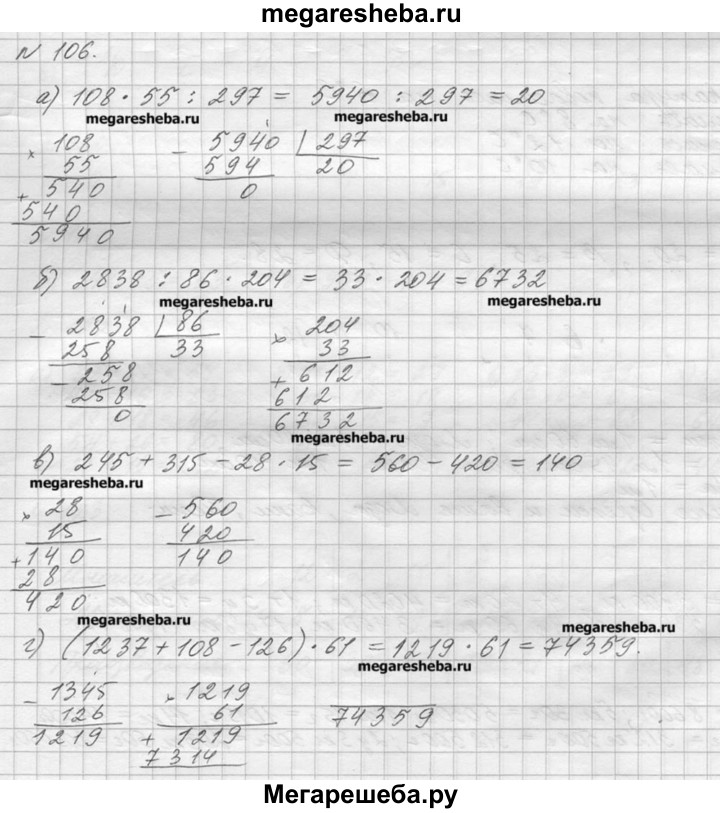 megaresheba.ru
№ 106.
а) 108 · 55 : 297 = 5940 : 297 = 20
megaresheba.ru
megaresheba.ru
× 108
55
+ 540
540
5940
− 5940 | 297
594 20
0
б) 2838 : 86 · 204 = 33 · 204 = 6732
megaresheba.ru
megaresheba.ru
− 2838 | 86
258 33
− 258
258
0
× 204
33
+ 612
612
6732
megaresheba.ru
в) 245 + 315 − 28 · 15 = 560 − 420 = 140
megaresheba.ru
× 28
15
+ 140
28
420
− 560
420
140
megaresheba.ru
megaresheba.ru
г) (1237 + 108 − 126) · 61 = 1219 · 61 = 74359.
megaresheba.ru
− 1345
126
1219
× 1219
61
+ 1219
7314
74359
megaresheba.ru
Мегарешеба.ру